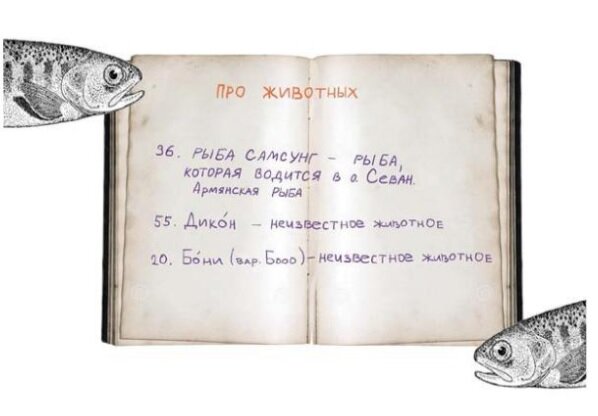 ПРО ЖИВОТНЫХ
36. РЫБА САМСУНГ – РЫБА,
КОТОРАЯ ВОДИТСЯ В о. СЕВАН.
АРМЯНСКАЯ РЫБА
55. ДИКО́Н – НЕИЗВЕСТНОЕ ЖИВОТНОЕ
20. БО́НИ (ВАР. БОоо) – НЕИЗВЕСТНОЕ ЖИВОТНОЕ